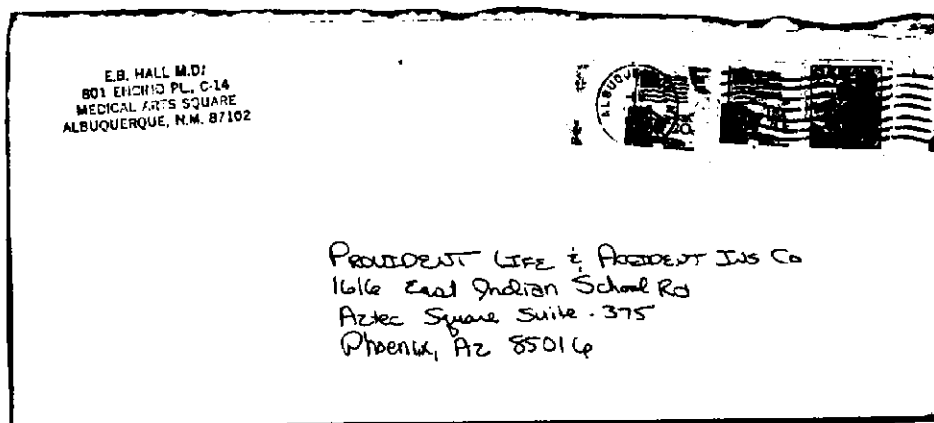 E.B. HALL M.D.
801 ENCINO PL., C-14
MEDICAL ARTS SQUARE
ALBUQUERQUE, N.M. 87102
ALBUQUE
PROVIDENT LIFE & ACCIDENT INS CO
1616 East Indian School Rd
Aztec Square Suite - 375
Phoenix, Az 85016